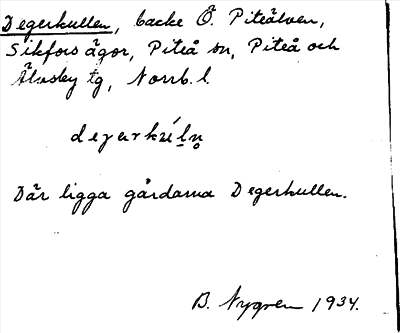 Degerkullen, backe Ö. Piteälven,
Sikfors ägor, Piteå sn, Piteå och
Älvsby tg, Norrb. l.
Där ligga gårdarna Degerkullen.
B. Nygren 1934.